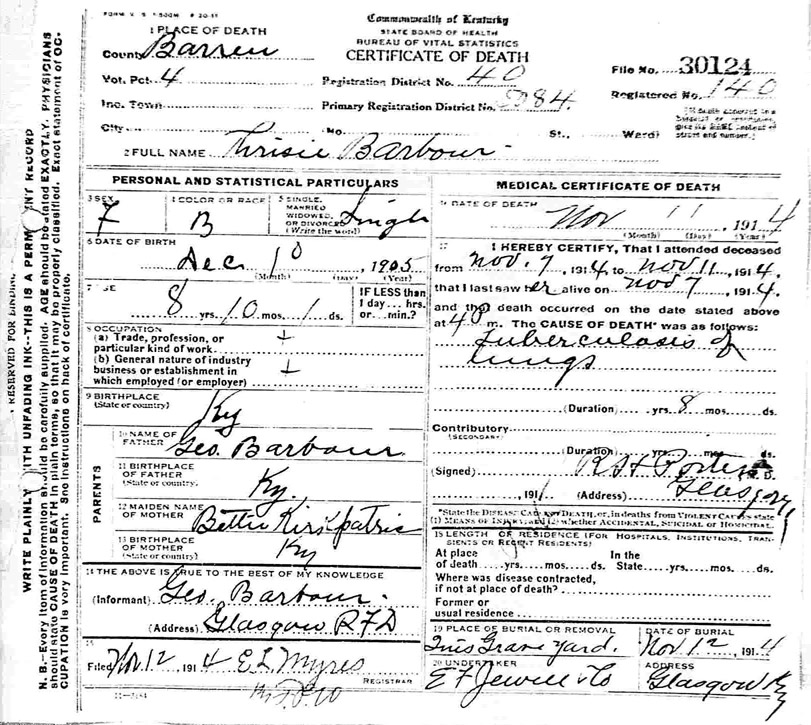 FORM V. S. 1-500M 8-30-11
Commonwealth of Kentucky
STATE BOARD OF HEALTH
BUREAU OF VITAL STATISTICS
CERTIFICATE OF DEATH
1 PLACE OF DEATH
County Barren
Vot. Pct. 4
Registration District No. 40
File No. 30124
Inc. Town
Primary Registration District No. 84
Registered No. 140
City No. St., Ward)
2 FULL NAME Barbour
PERSONAL AND STATISTICAL PARTICULARS
3 SEX F
4 COLOR OR RACE B
5 SINGLE, MARRIED WIDOWED, OR DIVORCED (Write the word) Single
6 DATE OF BIRTH
Dec 10 1905
(Month) (Day) (Year)
7 AGE
8 yrs. 10 mos. 1 ds.
IF LESS than 1 day... hrs. or... min.?
8 OCCUPATION
(a) Trade, profession, or
particular kind of work
(b) General nature of industry
business or establishment in
which employed (or employer)
9 BIRTHPLACE
(State or country) Ky
PARENTS
10 NAME OF FATHER Geo. Barbour
11 BIRTHPLACE OF FATHER (State or country) Ky.
12 MAIDEN NAME OF MOTHER Bettie Kirkpatric
13 BIRTHPLACE OF MOTHER (State or country) Ky
14 THE ABOVE IS TRUE TO THE BEST OF MY KNOWLEDGE
(Informant) Geo. Barbour
(Address) Glasgow RFD
15
Filed Nov 12, 1914 E L Myres
REGISTRAR
11-3184
MEDICAL CERTIFICATE OF DEATH
16 DATE OF DEATH
Nov 11 1914
(Month) (Day) (Year)
17 I HEREBY CERTIFY, That I attended deceased
from Nov. 7, 1914, to Nov 11, 1914.
that I last saw her alive on Nov 7, 1914.
and that death occurred on the date stated above
at 4 P m. The CAUSE OF DEATH* was as follows:
Tuberculosis of
lungs
(Duration) yrs. 8 mos. ds.
Contributory
(SECONDARY)
(Duration) yrs. mos. ds.
(Signed) R H Porter M. D.
, 191 (Address) Glasgow
*State the DISEASE CAUSING DEATH, or, in deaths from VIOLENT CAUSES state
(1) MEANS OF INJURY; and (2) whether ACCIDENTAL, SUICIDAL or HOMICIDAL.
18 LENGTH OF RESIDENCE (FOR HOSPITALS, INSTITUTIONS, TRANSIENTS OR RECENT RESIDENTS)
At place of death yrs. mos. ds. In the State yrs. mos. ds.
Where was disease contracted,
if not at place of death?
Former or
usual residence
19 PLACE OF BURIAL OR REMOVAL Grave yard.
DATE OF BURIAL Nov 12, 1914
20 UNDERTAKER E F Jewell & Co
ADDRESS Glasgow Ky
RESERVED FOR BINDING
WRITE PLAINLY WITH UNFADING INK--THIS IS A PERMANENT RECORD
N. B.--Every item of information should be carefully supplied. AGE should be stated EXACTLY. PHYSICIANS
should state CAUSE OF DEATH in plain terms, so that it may be properly classified. Exact statement of OC-
CUPATION is very important. See instructions on back of certificate.